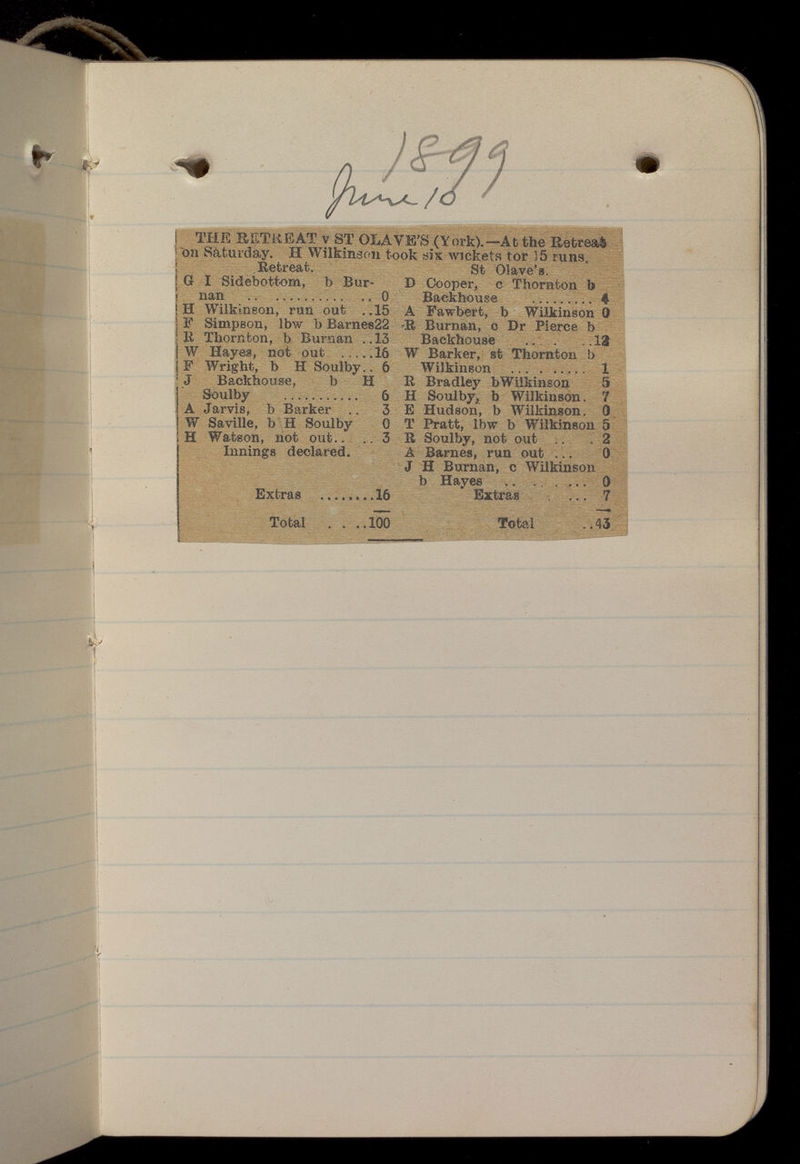 1899
June 10
THE RETREAT v ST OLAVE'S (York).—At the Retreat
on Saturday. H Wilkinson took six wickets for 15 runs.
Retreat.
G I Sidebottom, b Bur-
nan .. ............ .. 0
H Wilkinson, run out ..15
F Simpson, lbw b Barnes22
R Thornton, b Burnan ..13
W Hayes, not out .....16
F Wright, b H Soulby.. 6
J Backhouse, b H
Soulby ........... 6
A Jarvis, b Barker .. 3
W Saville, b H Soulby 0
H Watson, not out.. .. 3
Innings declared.
Extras ........16
Total . . ..100
St Olave's.
D Cooper, c Thornton b
Backhouse ......... 4
A Fawbert, b Wilkinson 0
R Burnan, c Dr Pierce b
Backhouse .. . . ..12
W Barker, st Thornton b
Wilkinson ......... 1
R Bradley bWilkinson 5
H Soulby, b Wilkinson. 7
E Hudson, b Wilkinson. 0
T Pratt, lbw b Wilkinson 5
R Soulby, not out .. . 2
A Barnes, run out ... 0
J H Burnan, c Wilkinson
b Hayes .. .. . ... 0
Extras . ... 7
Total ..43